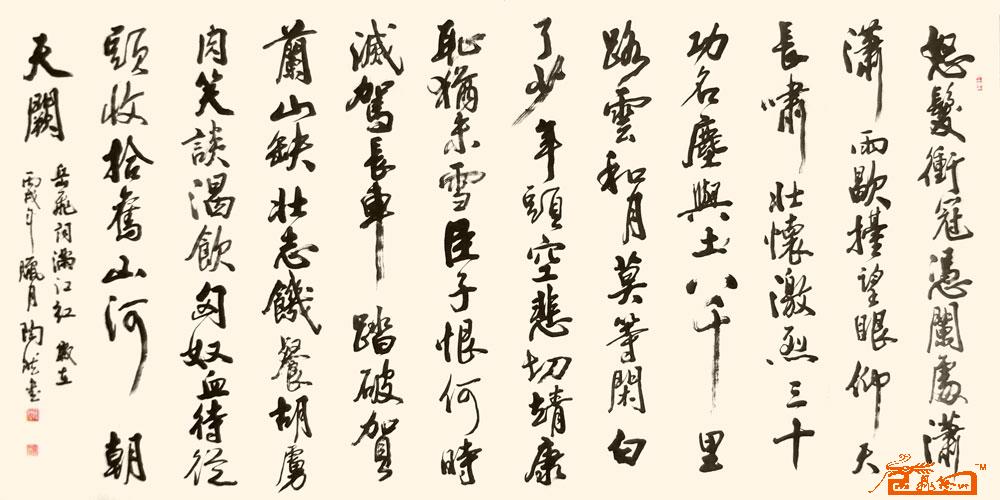 怒髮衝冠憑闌處瀟
瀟雨歇擡望眼仰天
長嘯壯懷激烈三十
功名塵與土八千里
路雲和月莫等閑白
了少年頭空悲切靖康
恥猶未雪臣子恨何時
滅駕長車踏破賀
蘭山缺壯志饑餐胡虜
肉笑談渴飲匈奴血待從
頭收拾舊山河朝
天闕
岳飛詞滿江紅歲在
丙戌年臘月陶書